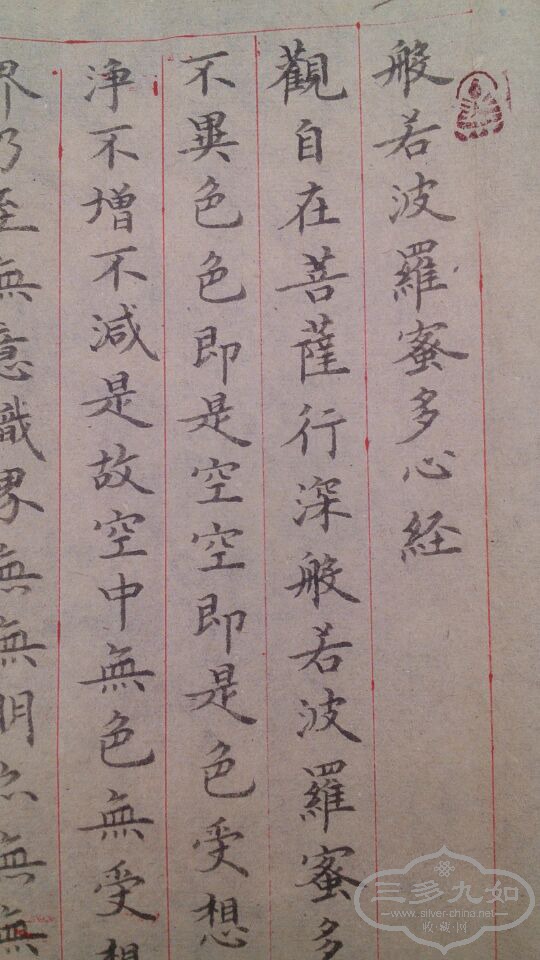 般若波羅蜜多心経
觀自在菩薩行深般若波羅蜜多
不異色色即是空空即是色受想
淨不增不減是故空中無色無受想
界乃至無意識界無無明亦無無
三多九如
www.silver-china.net
收·藏·网